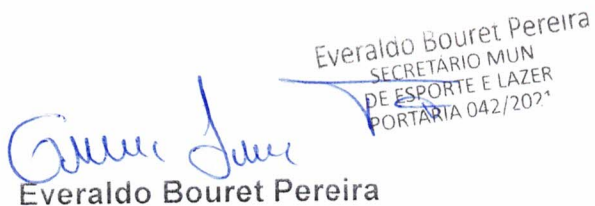 Everaldo Bouret Pereira
SECRETÁRIO MUN
DE ESPORTE E LAZER
PORTARIA 042/2021
Everaldo Bouret Pereira